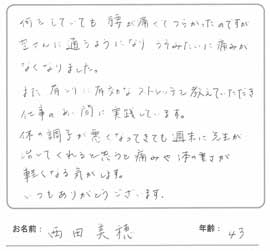 何をしていても腰が痛くてつらかったのですが
さんに通うようになりうそみたいに痛みが
なくなりました。
また肩こりに有効なストレッチを教えていただき
仕事の合い間に実践しています。
体の調子が悪くなってきても週末に先生が
治してくれると思うと痛みや体の重さが
軽くなる気がします。
いつもありがとうございます。
お名前: 西田美穂 年齢: 43